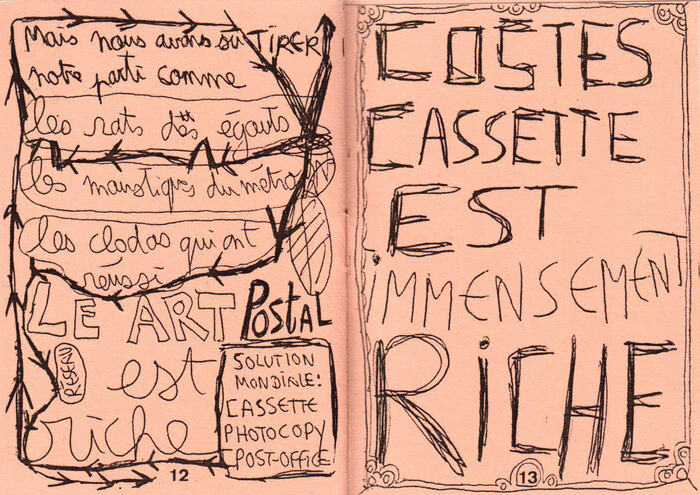 Mais nous avons su TIRER
notre parti comme
les rats des égouts
les moustiques du métro
les clodos qui ont
réussi
LE ART Postal
RESEAU
est
riche
SOLUTION
MONDIALE:
CASSETTE
PHOTOCOPY
POST-OFFICE
12
COSTES
CASSETTE
EST
iMMENSEMENT
RiCHE
13